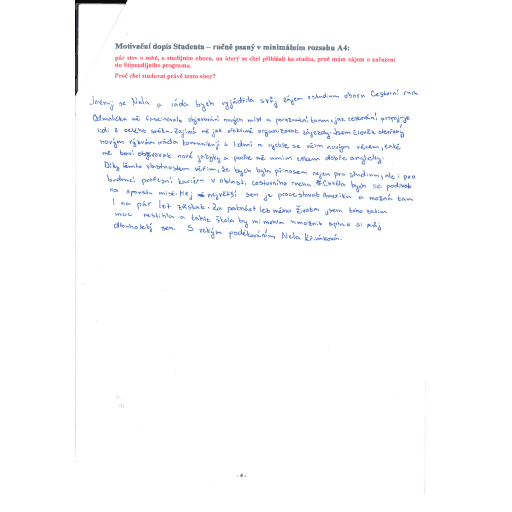 Motivační dopis Studenta – ručně psaný v minimálním rozsahu A4:
pár slov o sobě, o studijním oboru, na který se chci přihlásit ke studiu, proč mám zájem o zařazení
do Stipendijního programu.
Proč chci studovat právě tento obor?
Jmenuji se Nela a ráda bych vyjádřila svůj zájem o studium oboru Cestovní ruch
Odmalička mě fascinovalo objevování nových míst a poznávání toho, jak cestování propojuje
lidi z celého světa. Zajímá mě jak efektivně organizovat zájezdy. Jsem člověk otevřený
novým výzvám, ráda komunikuji s lidmi a rychle se učím novým věcem, také
mě baví objevovat nové jazyky a podle mě umím celkem dobře anglicky.
Díky těmto vlastnostem věřím, že bych byla přínosem nejen pro studium, ale i pro
budoucí profesní kariéru v oblasti cestovního ruchu. Chtěla bych se podívat
na spoustu míst. Můj největší sen je procestovat Ameriku a možná tam
i na pár let zůstat. Za patnáct let mého života jsem toho zatím
moc nestihla a tahle škola by mi mohla umožnit splnit si můj
dlouholetý sen. S velkým poděkováním Nela
- 6 -